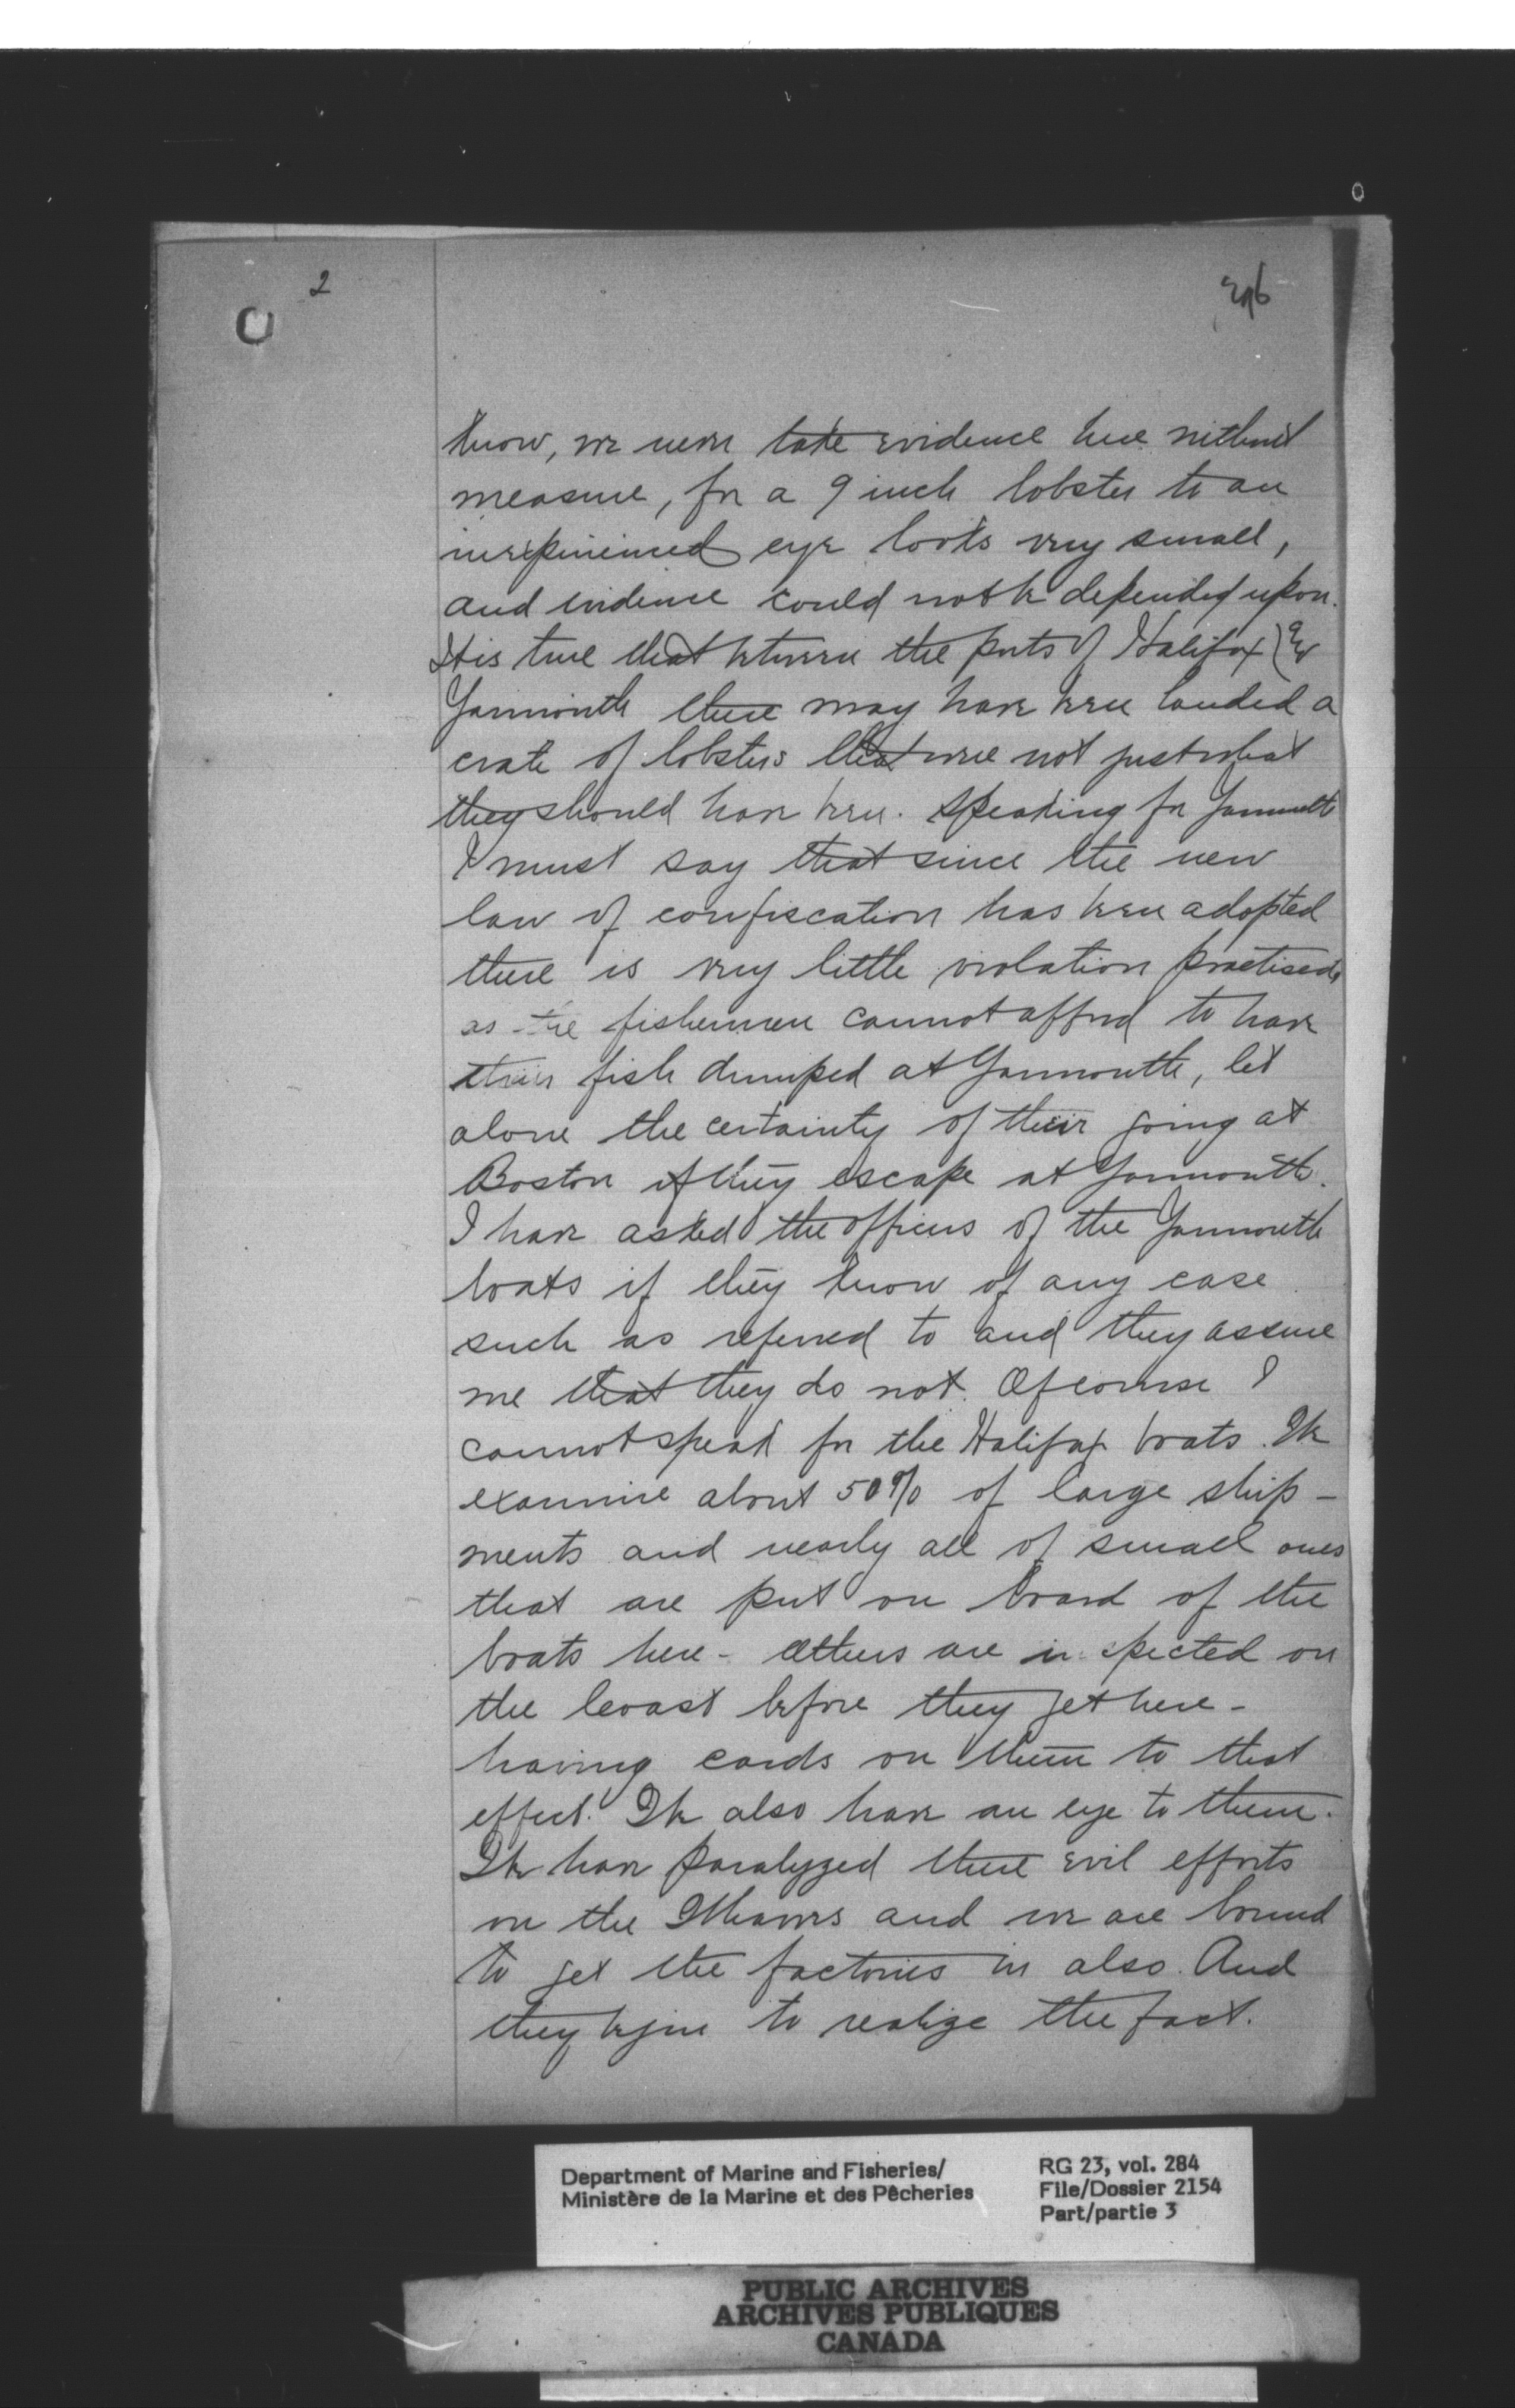 2
know, we never take evidence here without
measure, for a 9 inch lobster to an
inexperienced eye looks very small,
and evidence could not be depended upon.
It is true that between the ports of Halifax &
Yarmouth there may have been landed a
crate of lobsters that were not just what
they should have been. Speaking for Yarmouth
I must say that since the new
law of confiscation has been adopted
there is very little violation practised,
as the fishermen cannot afford to have
their fish dumped at Yarmouth, let
alone the certainty of their going at
Boston if they escape at Yarmouth.
I have asked the officers of the Yarmouth
boats if they know of any case
such as referred to and they assure
me that they do not. Of course I
cannot speak for the Halifax boats. We
examine about 50% of large ship-
ments and nearly all of small ones
that are put on board of the
boats here - others are inspected on
the coast before they get here -
having cards on them to that
effect. We also have an eye to them.
We have paralyzed there evil efforts
on the and we are bound
to get the factories in also. And
they begin to realize the fact.
Department of Marine and Fisheries/
Ministère de la Marine et des Pêcheries
RG 23, vol. 284
File/Dossier 2154
Part/partie 3
PUBLIC ARCHIVES
ARCHIVES PUBLIQUES
CANADA